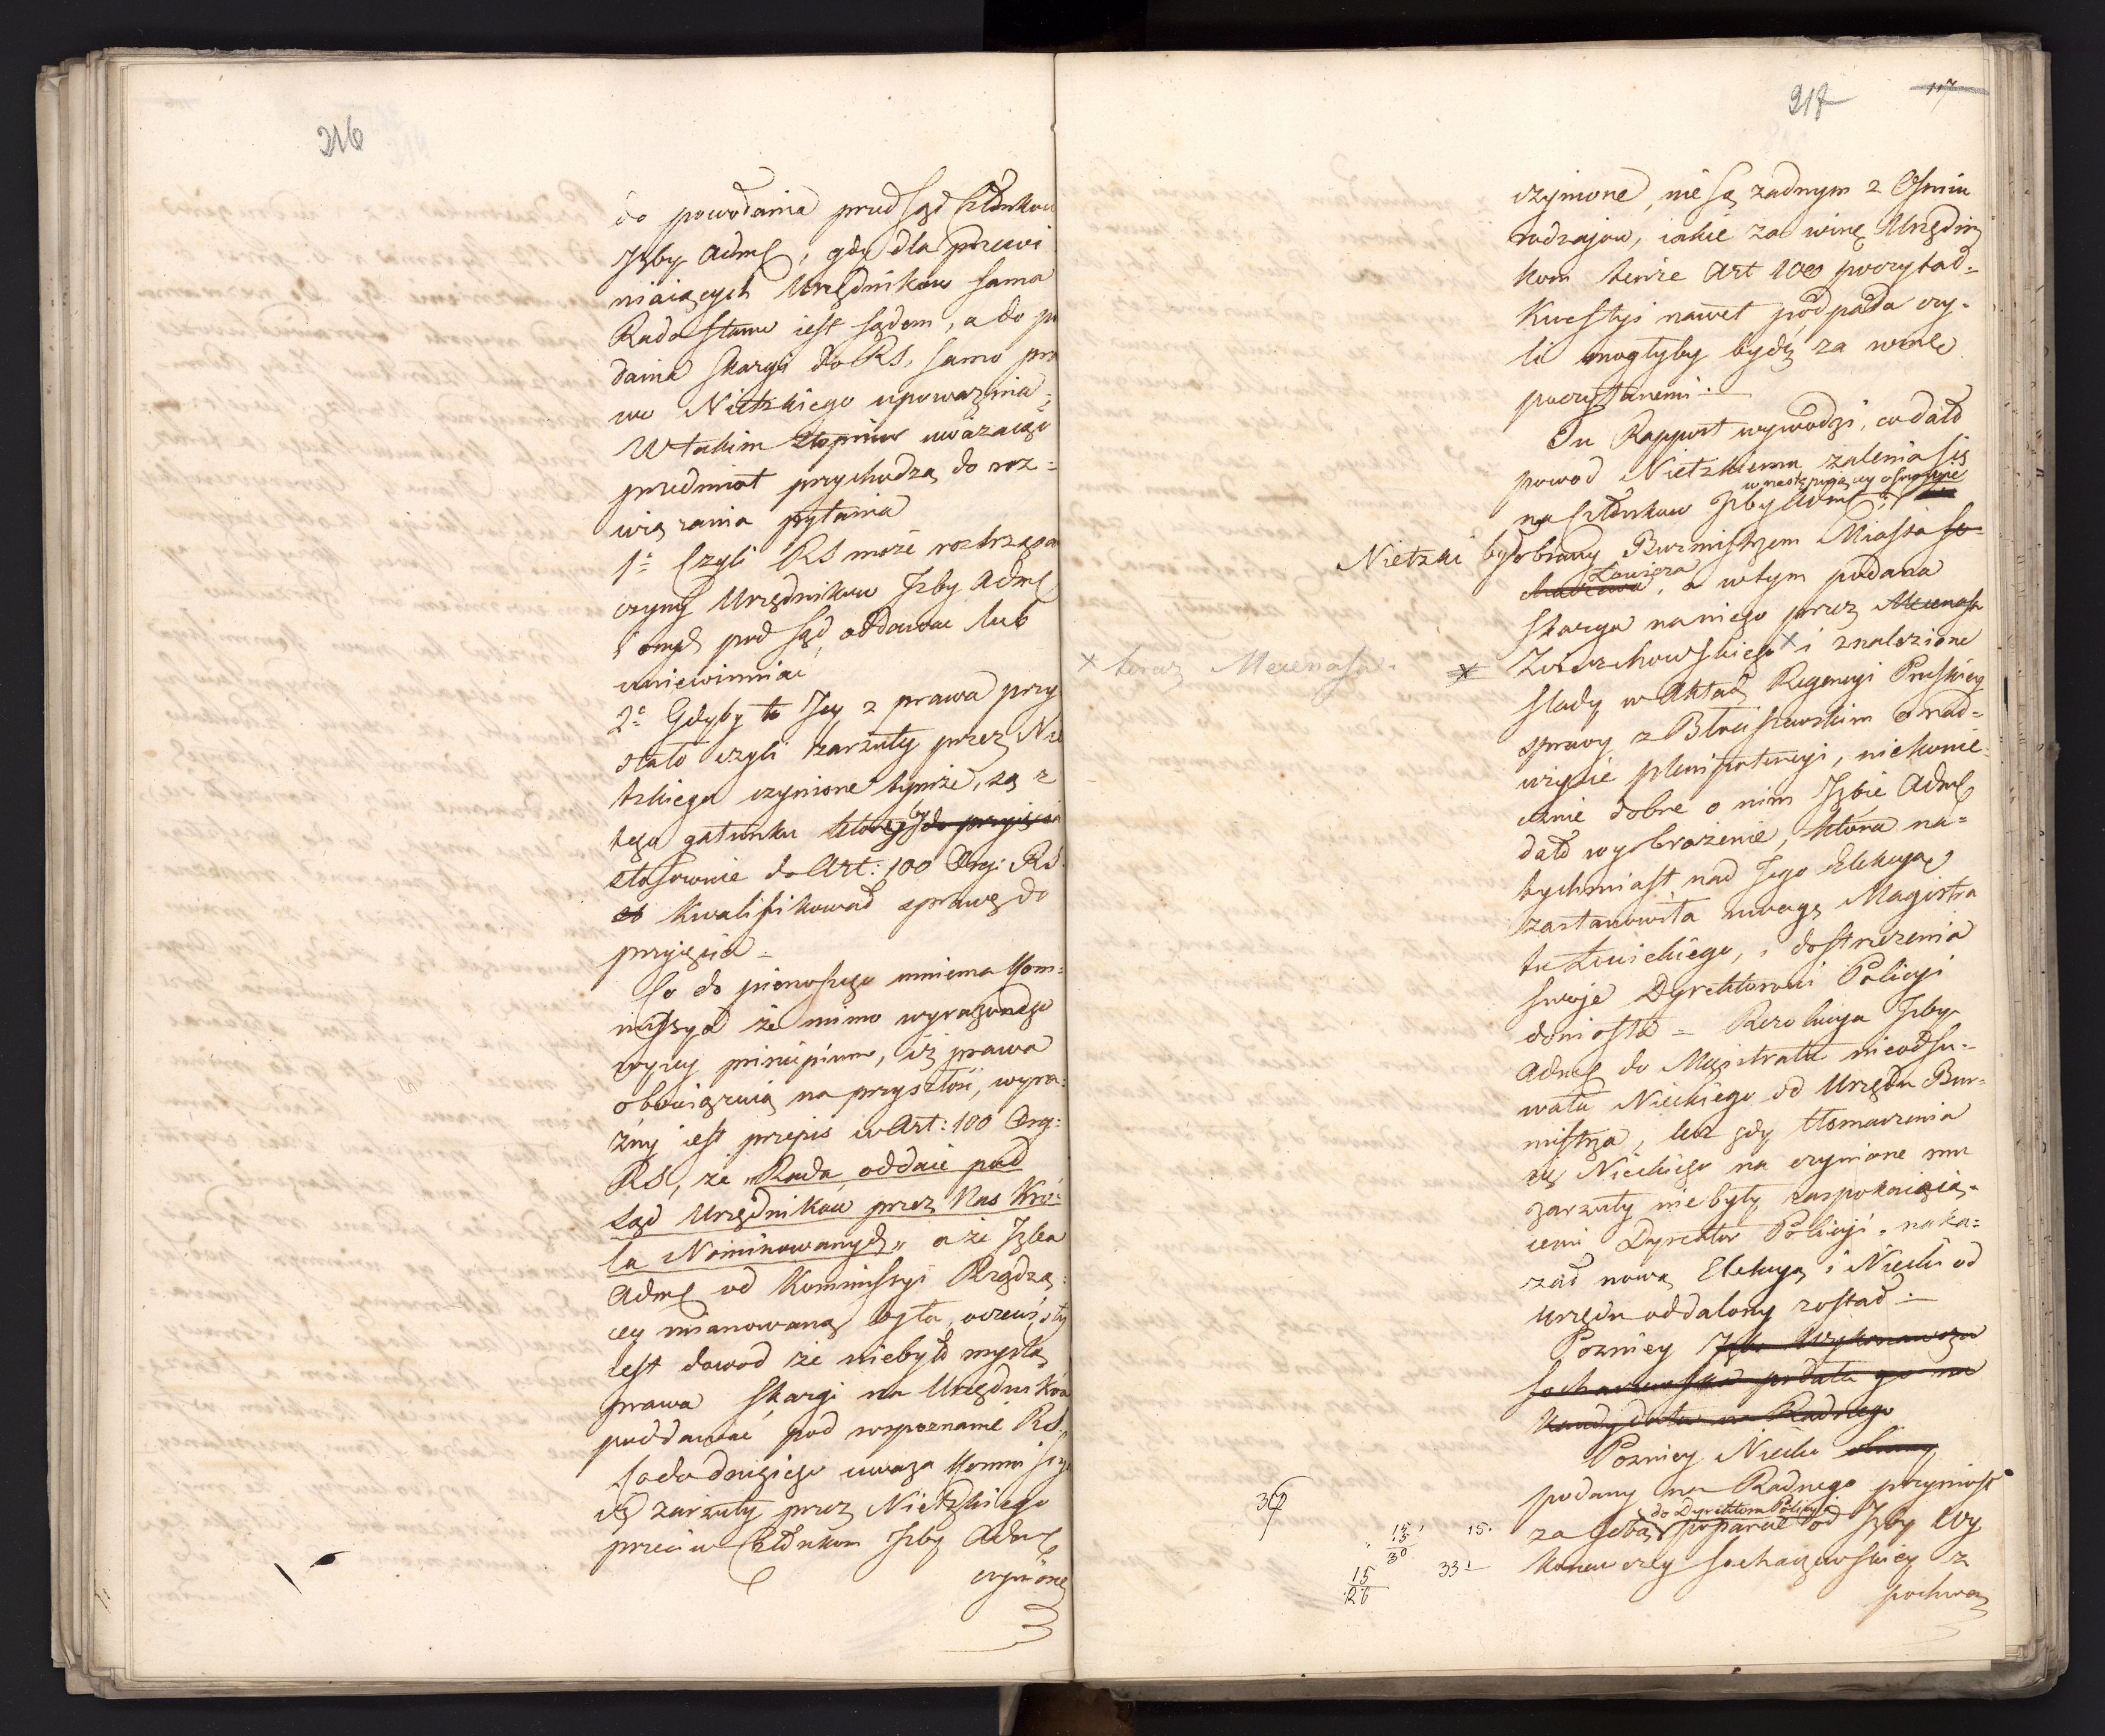 216
do powołania przed Sąd Członkow
Izby Adm, gdy dla przewi
niaiących Urzędnikow sama
Rada Stanu iest sądem, a do po
dania skargi do RS, samo pra
wo Nietzkiego upoważnia =
W takim stopniu uważaiąc
przedmiot przychodzą do roz=
wiązania pytania
1° Czyli RS może roztrząsać
czyny Urzędnikow Izby Adm
i onych pod sąd oddawać lub
uniewinniać
2° Gdyby to Jey z prawa przy
stało czyli zarzuty przez Nie
tzkiego czynione tymże, są z
tego gatunku któreby do przyięcia
stosownie do Art: 100 Org: RS
kwalifikował sprawę do
przyięcia =
Co do pierwszego mniema Kom=
missya że mimo wyrażonego
wyżey principium, iż prawa
obowiązuią na przyszłość, wyra=
źny iest przepis w Art: 100 Org:
RS, że „Rada oddaie pod
Sąd Urzędników przez Nas Kró=
la Nominowanych„ a że Izba
Adm od Kommissyi Rządzą=
cey mianowaną była, oczewisty
iest dowod że niebyło myślą
prawa skargi na Urzędników
poddawać pod rozpoznanie RS.
Co do drugiego uważa Kommissya
iż zarzuty przez Nietzkiego
przeciw Członkom Izby Adm
czynione
217
117
czynione, nie są żadnym z Ośmiu
rodzajow, iakie za winę Urzędni
kom tenże Art 100 poczytał=
Kwestyi nawet podpada czy=
li mogłyby bydź za winę
poczytanemi —
Tu Rapport wywodzi, co dało
powod Nietzkiemu żalenia się
na Członkow Izby Adm
w następuiący sposobie
Nietzki był obrany Burmistrzem Miasta So=
chaczewa, a w tym podana
Łowicza
skarga na niego przez Mecenasa
Zwierzchowskiego × i znalezione
× teraz Mecenasa.
ślady w Aktach Regencyi Pruskiey
sprawy z Błaszewskim o nad=
użycie plenipotencyi, niekonie=
cznie dobre o nim Izbie Adm
dało wyobrażenie, która na=
tychmiast nad Jego Elekcyą
zastanowiła uwagę Magistra
tu Łowickiego, i dostrzeżenia
swoje Dyrektorowi Policyi
doniosła = Rezolucya Izby
Adm do Magistratu nieodsu=
wała Nieckiego od Urzędu Bur=
mistrza, lecz gdy tłomaczenia
się Nieckiego na czynione mu
zarzuty nie były zaspokaiaią=
cemi Dyrektor Policyi naka=
zał nową Elekcyą i Niecki od
Urzędu oddalony został —
Pozniey Izba Wykonawcza
Sochaczewska podała go na
Kandydata na Radnego
Pozniey Niecki obrany
podany na Radnego przyniosł
za sobą poparcie od Izby Wy
do Dyrektora Policyi
konawczey Sochaczewskiey z
pochwa
15
15
30
15.
33
15
26